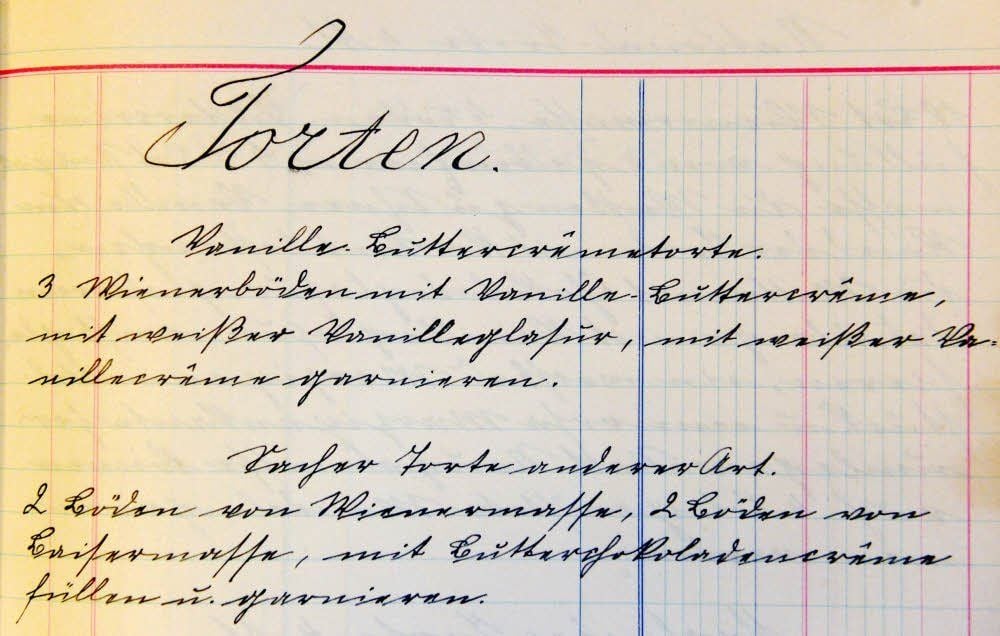 Torten.
Vanille-Buttercrêmetorte.
3 Wienerböden mit Vanille-Buttercrême,
mit weißer Vanilleglasur, mit weißer Va=
nillecrême garnieren.
Sacher Torte anderer Art.
2 Böden von Wienermasse, 2 Böden von
Baisermasse, mit Butterchokoladencrême
füllen u. garnieren.